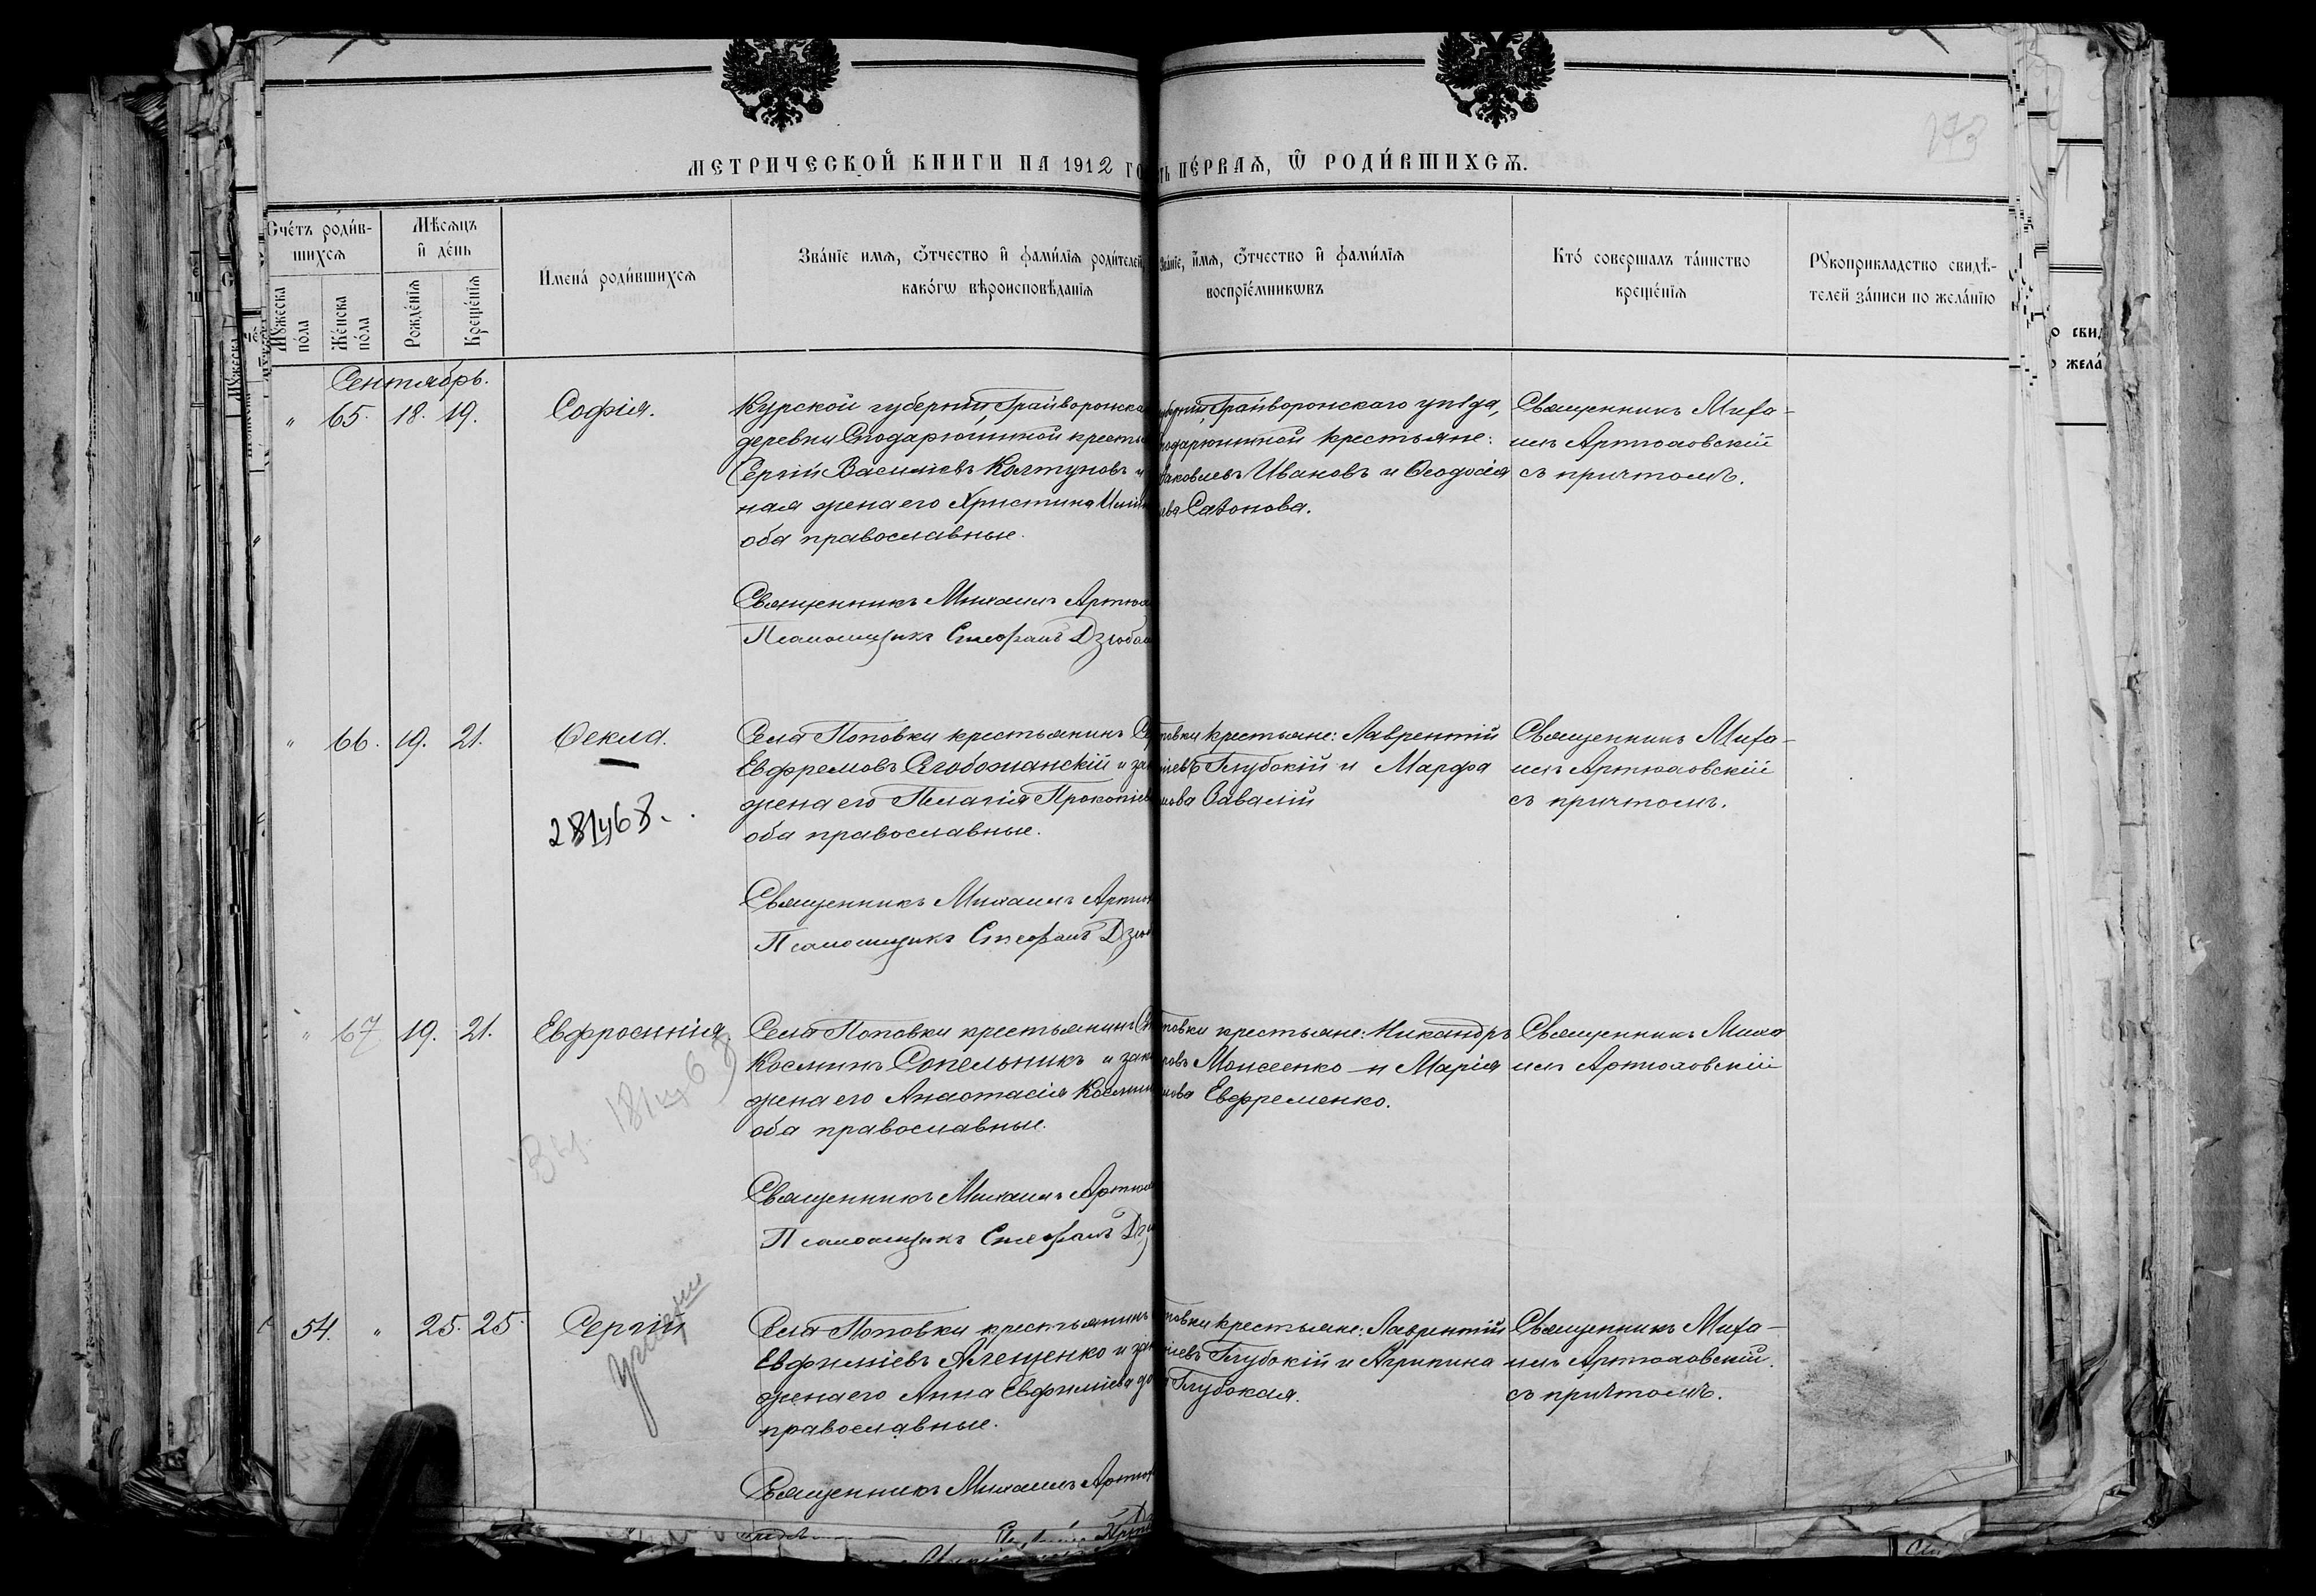 МЕТРИЧЕСКОЙ КНИГИ НА 1912 ГО
ПЕ́РВАѦ, Ѿ РОДИ́ВШИХСѦ.
Счéтъ роди́в-
шихсѧ
Мꙋ́жеска
по́ла
Же́нска
по́ла
Мѣ́сѧцъ
и҆ де́нь
Рожде́нїѧ
Креще́нїѧ
И҆мена̀ роди́вшихсѧ
Зва́нїе имѧ, ѻ҆́тчество и҆ фами́лїѧ роди́телей
како́гѡ вѣроисповѣ́данїѧ
Зва́нїе, и҆́мѧ, ѻ҆́тчество и҆ фами́лїѧ
воспрїе́мникѡвъ
Кто̀ совершалъ та́инство
креще́нїѧ
Рꙋкоприкладство свидѣ́-
телей за́писи по жела́нїю
Сентябрь.
" 65. 18. 19. Софія.
Курской губерніи, Грайворонска
деревни Сподарюшиной кресть
Сергій Василіевъ Колтуновъ и
ная жена его Христина Иліи
оба православные.
Священникъ Михаилъ Артюх
Псаломщикъ Стефанъ Дзюба
Грайворонскаго уѣзда,
подарюшиной крестьяне:
Яковлевъ Ивановъ и Ѳеодосія
ева Сафонова.
Священникъ Миха-
илъ Артюховскій
съ причтомъ.
" 66. 19. 21. Ѳекла.
Села Поповки крестьянинъ Се
Евфремовъ Слобожанскій и зак
жена его Пелагія Прокопіев
оба православные.
Священникъ Михаилъ Артюх
Псаломщикъ Стефанъ Дзю
повки крестьяне: Лаврентій
іевъ Глубокій и Марфа
мова Завалій
Священникъ Миха-
илъ Артюховскій
съ причтомъ.
" 67 19. 21. Евфросинія.
Села Поповки крестьянинъ
Космминъ Сопельникъ и зак
жена его Анастасія Косми
оба православные.
Священникъ Михаилъ Артюх
Псаломщикъ Стефанъ Дз
повки крестьяне: Никандръ
ровъ Моисеенко и Марія
мова Евфременко.
Священникъ Миха
илъ Артюховскій
54. " 25. 25. Сергій
Села Поповки крестьянинъ
Евфиміевъ Алещенко и зак
жена его Анна Евфиміева
православные.
Священникъ Михаилъ Артюх
повки крестьяне: Лаврентій
іевъ Глубокій и Агрипина
Глубокая.
Священникъ Миха-
илъ Артюховскій.
съ причтомъ.